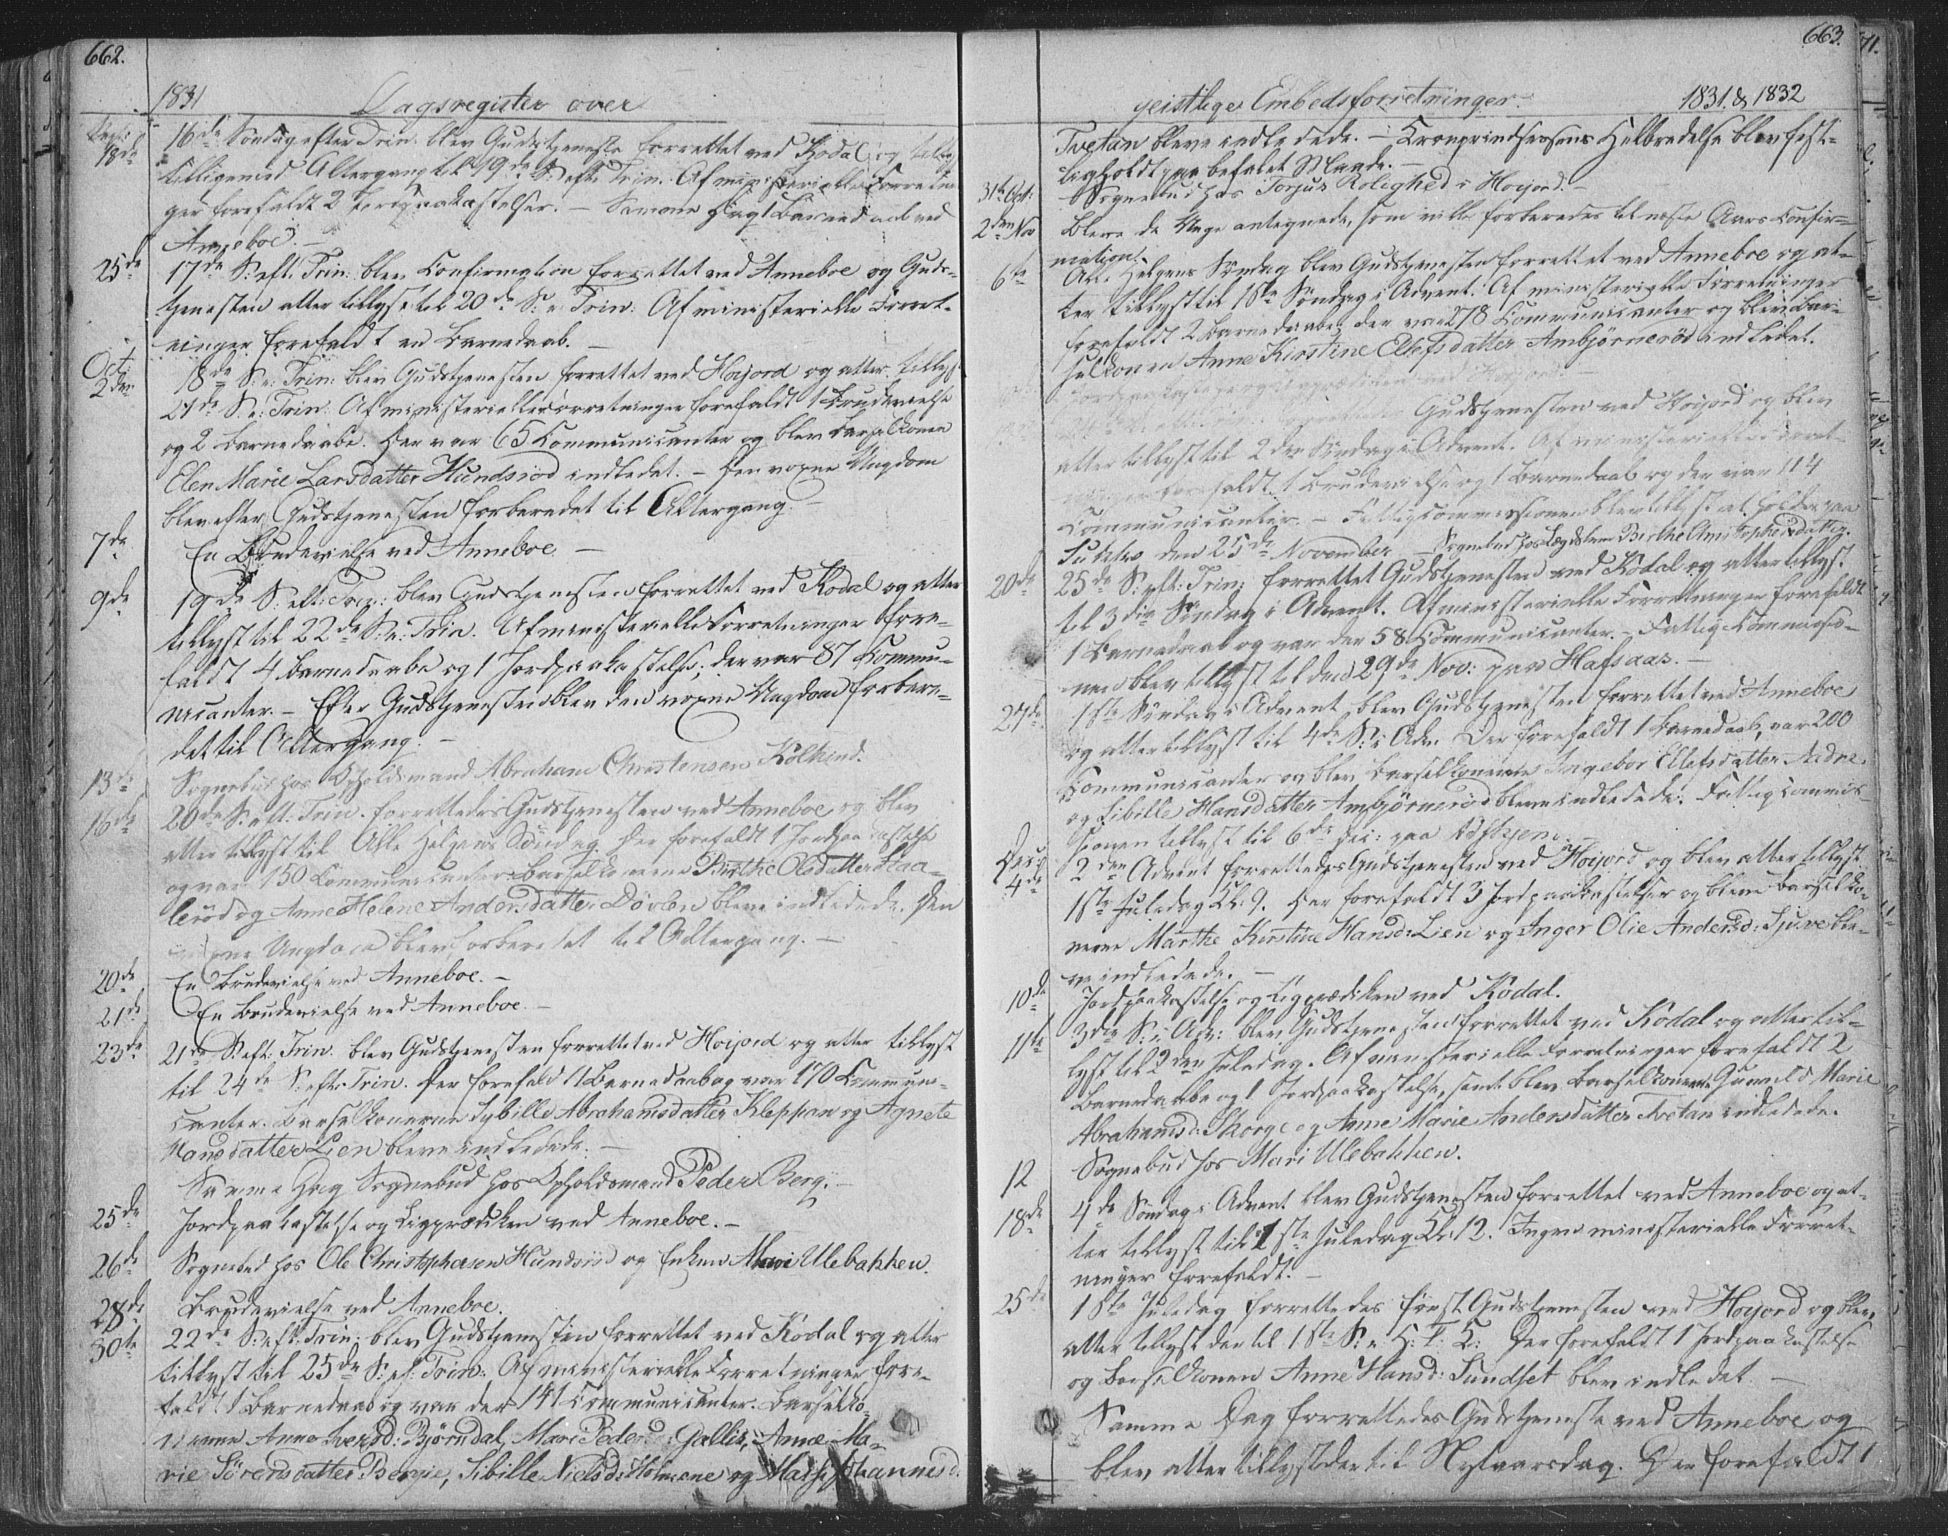 662.
1831 Dagsregister over
Sept: 18de 16de Søndag efter Trin. blev Gudstjeneste forrettet ved Kodal og
tilligemed Altergang til 19de S. eft. Trin. Af ministerielle Forretnin-
ger forefaldt 2 Jordpaakastelser. – Samme Dag 1 Barnedaab ved
Anneboe. –
25de 17de S: eft: Trin: blev Confirmation forrettet ved Anneboe og Guds-
tjenesten atter tillyst til 20de S: e: Trin: Af ministerielle Forret-
ninger forefaldt en Barnedaab. –
Oct: 2den 18de S: e: Trin: blev Gudstjenesten forrettet ved Hoijord og atter tillyst
21de S. e: Trin: Af ministerielle Forretninger forefaldt 1 Brudevielse
og 2 Barnedaabe. Der var 65 Communicanter og blev Barselkonen
Elen Marie Larsdatter Hundsrød indledet. – Den voxne Ungdom
blev efter Gudstjenesten forberedet til Altergang. –
7de En Brudevielse ved Anneboe. –
9de 19de S: eft: Trin: blev Gudstjenesten forrettet ved Kodal og atter
tillyst til 22de S: e: Trin. Af ministerielle Forretninger fore-
faldt 4 Barnedaabe og 1 Jordpaakastelse; der var 87 Commu-
nicanter. – Efter Gudstjenesten blev den voxne Ungdom forbere-
det til Altergang. –
13de Sognebud hos Opholdsmand Abraham Christensen Kolkind.
16de 20de S. eft: Trin. forrettedes Gudstjenesten ved Anneboe og blev
atter tillyst til Alle Helgens Søndag. Der forefaldt 1 Jordpaakastelse
og var 150 Communicanter. Barselkonerne Birthe Olsdatter Haa-
lerød og Anne Helene Andersdatter Dørlen bleve indledede. Den
voxne Ungdom blev forberedet til Altergang. –
20de En Brudevielse ved Anneboe. –
21de En Brudevielse ved Anneboe. –
23de 21de S. eft: Trin. blev Gudstjenesten forrettet ved Hoijord og atter tillyst
til 24de S: eft: Trin. Der forefaldt 1 Barnedaab og var 170 Communi-
canter. Barselkonerne Sybille Abrahamsdatter Kleppan og Agnete
Hansdatter Lien bleve indledede. –
Samme Dag Sognebud hos Opholdsmand Peder Berg. –
25de Jordpaakastelse og Ligprædiken ved Anneboe. –
26de Sognebud hos Ole Christophersen Hundsrød og Enken Mari Ulebakken.
28de Brudevielse ved Anneboe.
30te 22de S: eft: Trin: blev Gudstjenesten forrettet ved Kodal og atter
tillyst til 25de S: ef: Trin: Af ministerielle Forretninger fore-
faldt 1 Barnedaab og var der 141 Communicanter. Barselko-
nerne Anne Iversd: Bjørndal, Mari Pedersd: Gallis, Anne Ma-
rie Sørensdatter Bergie, Sibille Nielsd: Holmene og Johannesd.
663.
geistlige Embedsforretninger. 1831. & 1832
Tvetan bleve indledede. – Kronprindsessens Helbredelse blev høi-
tigholdt paa befalet Maade. –
31te Oct: Sognebud hos Torjus Rolighed i Hoijord. –
2den Nov Bleve de Unge antegnede, som ville forberedes til næste Aars Confir-
mation.
6te All. Helgens Søndag blev Gudstjenesten forrettet ved Anneboe og at-
ter tillyst til 1ste Søndag i Advent. Af ministerielle Forretninger
forefaldt 2 Barnedaabe, der var 278 Communicanter og blev Bar-
selkonen Anne Kirstine Ellefsdatter Ambjørnerød indledet.
Jordpaakastelse og Ligprædiken ved Hoijord. –
Gudstjenesten ved Hoijord og blev
atter tillyst til 2den Søndag i Advent. Af ministerielle Forret-
ninger forefaldt 1 Brudevielse og 1 Barnedaab og der var 114
Communicanter. – Fattigcommissionen blev tillyst at holdes paa
den 25de November – Sognebud hos Birthe Christophersdatter.
20de 25de S: eft: Trin: forrettet Gudstjenesten ved Kodal og atter tillyst
til 3die Søndag i Advent. Af ministerielle Forretninger forefaldt
1 Barnedaab og var der 58 Communicanter. – Fattig Commissio-
nen blev tillyst til den 29de Nov: paa Hafsaas. –
27de 1ste Søndag i Advent blev Gudstjenesten forrettet ved Anneboe
og atter tillyst til 4de S: i Adv. Der forefaldt 1 Barnedaab, var 200
Communicanter og blev Barselkonerne Ingebor Ellefsdatter Nedre
og Sibille Hansdatter Ambjørnerød bleve indledede. Fattigcommis-
sionen tillyst til 6te Dec: paa
Decr 4de 2den Advent forrettedes Gudstjenesten ved Hoijord og blev atter tillyst
1ste Juledag Kl: 9. Der forefaldt 3 Jordpaakastelser og bleve Barselko-
nerne Marthe Kirstine Hansd: Lien og Inger Olie Andersd: Sjuve ble-
ve indledede. –
10de Jordpaakastelse og Ligprædiken ved Kodal.
11te 3die S: i Adv: blev Gudstjenesten forrettet ved Kodal og atter til-
lyst til 2den Juledag. Af ministerielle Forretninger forefaldt 2
Barnedaabe og 1 Jordpaakastelse, samt blev Barselkonerne Gunnild Marie
Abrahamsd: Skorge og Anne Marie Andersdatter Tvetan indledede.
12 Sognebud hos Mari Ulebakken.
18de 4de Søndag i Advent blev Gudstjenesten forrettet ved Anneboe og at-
ter tillyst til 1ste Juledag Kl: 12. Ingen ministerielle Forret-
ninger forefaldt. –
25de 1ste Juledag forrettedes først Gudstjenesten ved Hoijord og blev
atter tillyst der til 1ste S: e: H: 3: K: Der forefaldt 1 Jordpaakastelse
og Barselkonen Anne Hansd: Sundset blev indledet. –
Samme Dag forrettedes Gudstjeneste ved Anneboe og
blev atter tillyst der til Nytaarsdag. Der forefaldt 1